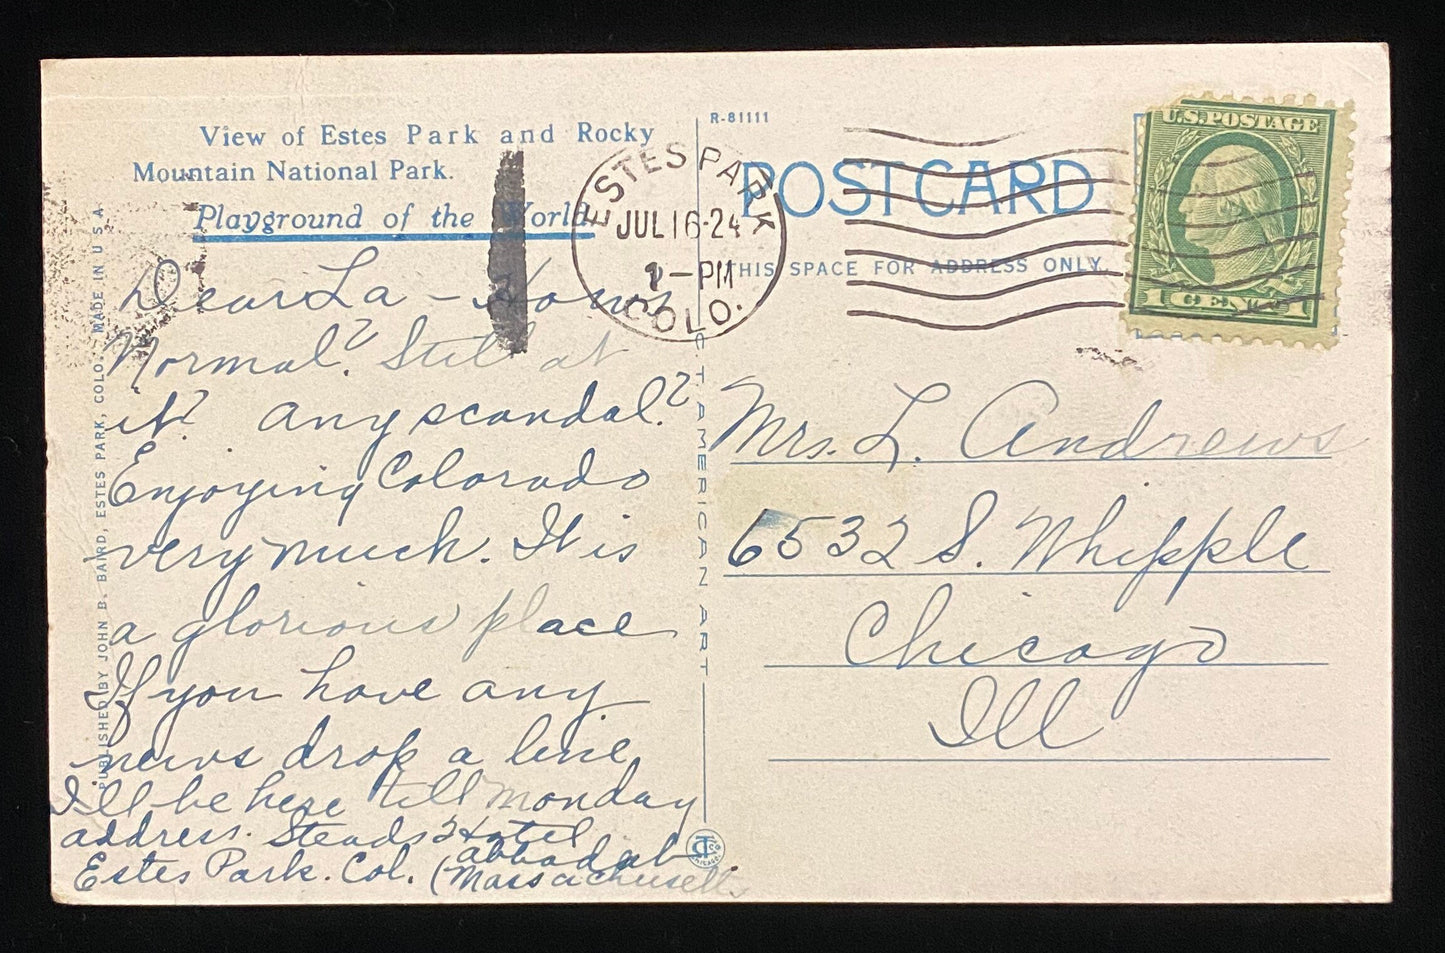 View of Estes Park and Rocky
Mountain National Park.
Playground of the World.
R-81111
POSTCARD
THIS SPACE FOR ADDRESS ONLY.
ESTES PARK
JUL 16-24
1-PM
COLO.
U.S. POSTAGE
1 CENT 1
Dear La - Hows
Normal? Still at
it? Any scandal?
Enjoying Colorado
very much. It is
a glorious place
If you have any
news drop a line
I'll be here till Monday
address. Steads Hotel
Estes Park. Col. (
Massachusetts
Mrs. L. Andrews
6532 S. Whipple
Chicago
Ill
PUBLISHED BY JOHN B. BAIRD, ESTES PARK, COLO. MADE IN U S A
C T AMERICAN ART